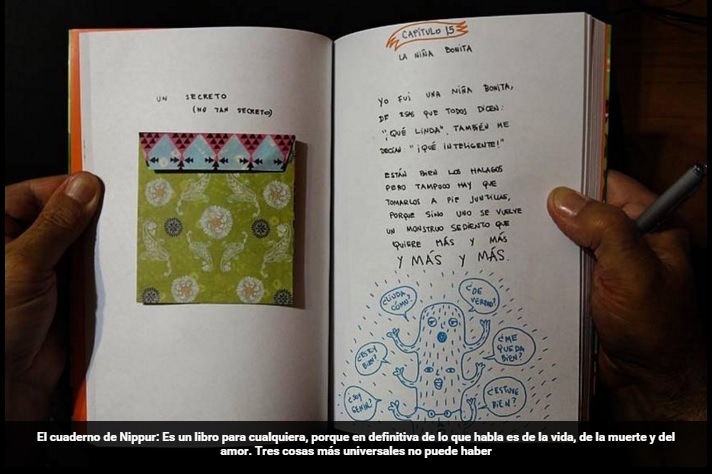 UN SECRETO
(NO TAN SECRETO)
CAPÍTULO 15
LA NIÑA BONITA
YO FUI UNA NIÑA BONITA,
DE ESAS QUE TODOS DICEN:
"¡QUÉ LINDA". TAMBIÉN ME
DECÍAN "¡QUÉ INTELIGENTE!"
ESTÁN BIEN LOS HALAGOS
PERO TAMPOCO HAY QUE
TOMARLOS A PIE JUNTILLAS,
PORQUE SINO UNO SE VUELVE
UN MONSTRUO SEDIENTO QUE
QUIERE MÁS Y MÁS
Y MÁS Y MÁS.
¿LINDA
CÓMO?
¿DE
VERDAD?
¿ESTOY
BIEN?
¿ME
QUEDA
BIEN?
¿SOY
GENIA?
¿ESTUVE
BIEN?
El cuaderno de Nippur: Es un libro para cualquiera, porque en definitiva de lo que habla es de la vida, de la muerte y del
amor. Tres cosas más universales no puede haber